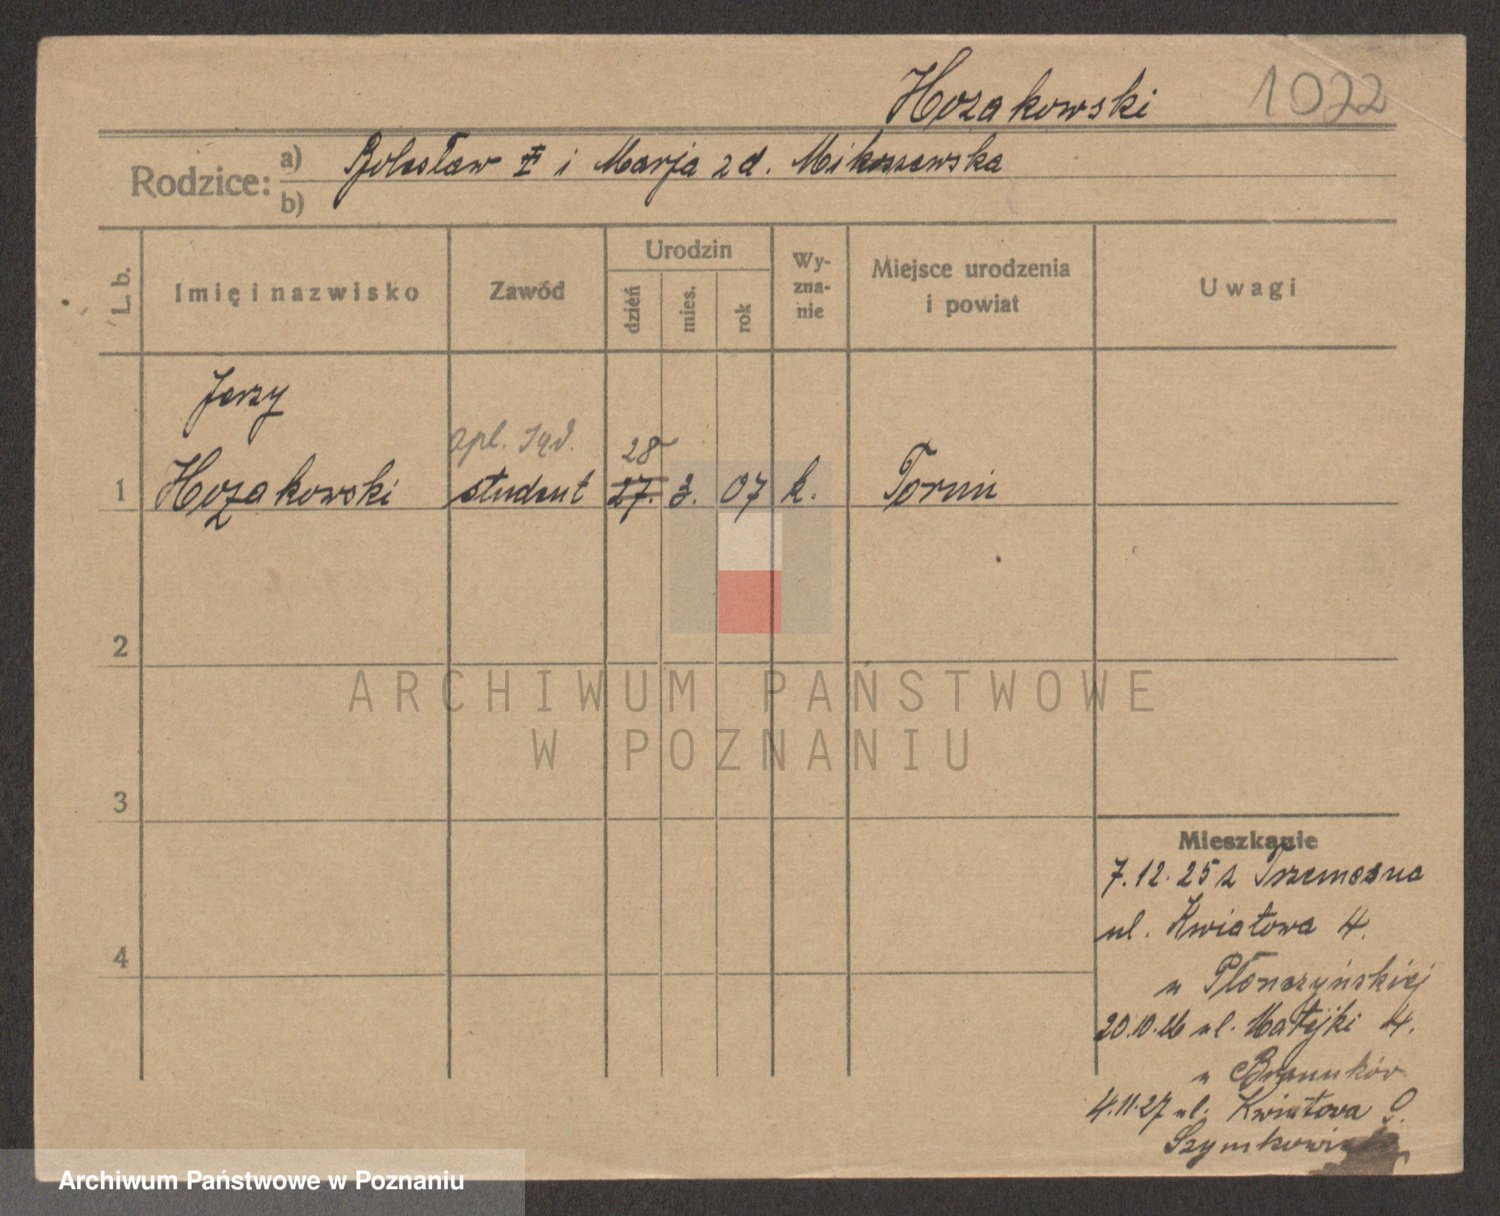 Hozakowski 1022
Rodzice: a) Bolesław † i Marja z d. Mikoszewska
b)
L. b. Imię i nazwisko Zawód Urodzin dzień mies. rok Wyznanie Miejsce urodzenia i powiat Uwagi
Jerzy
apl. sąd. 28
1 Hozakowski student 27. 3. 07 k. Toruń
2
ARCHIWUM PAŃSTWOWE
W POZNANIU
3
Mieszkanie
7.12.25 z Trzemeszna
ul. Kwiatowa 4.
4
u Płonczyńskiej
20.10.26 ul. Matejki 4.
u
4.11.27 ul. Kwiatowa 9.
Archiwum Państwowe w Poznaniu